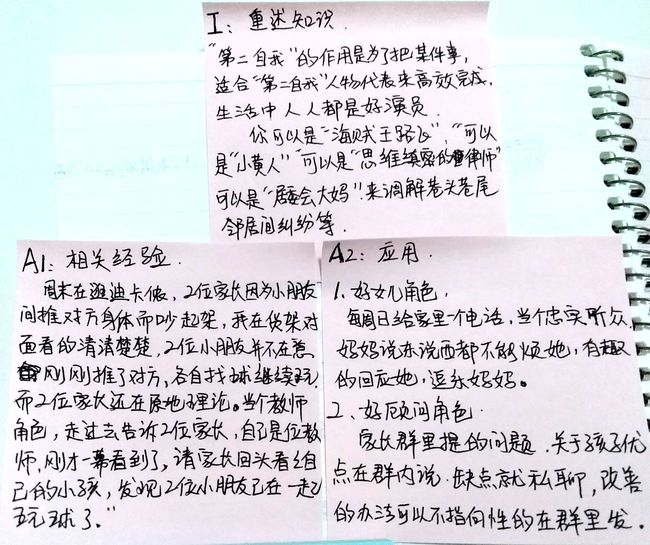 I：重述知识.
“第二自我”的作用是为了把某件事,
适合“第二自我”人物代表来高效完成,
生活中人人都是好演员.
你可以是“海贼王路飞”,“可以
是“小黄人”可以是“思维缜密的律师”
可以是“居委会大妈”来调解巷头巷尾
邻居间纠纷等.
A1：相关经验.
周末在迪卡侬,2位家长因为小朋友
间推对方身体而吵起架,我在货架对
面看的清清楚楚,2位小朋友并不在意
刚刚推了对方,各自找球继续玩
而2位家长还在原地理论。当个教师
角色,走过去告诉2位家长,自己是位教
师,刚才一幕看到了,请家长回头看看自
己的小孩,发现2位小朋友已在一起
玩球了.”
A2：应用.
1、好女儿角色.
每周日给家里一个电话,当个忠实听众,
妈妈说东说西都不能烦她,有趣
的回应她,逗乐妈妈。
2、好顾问角色.
家长群里提的问题.关于孩子优
点在群内说.缺点就私聊,改善
的办法可以不指向性的在群里发.